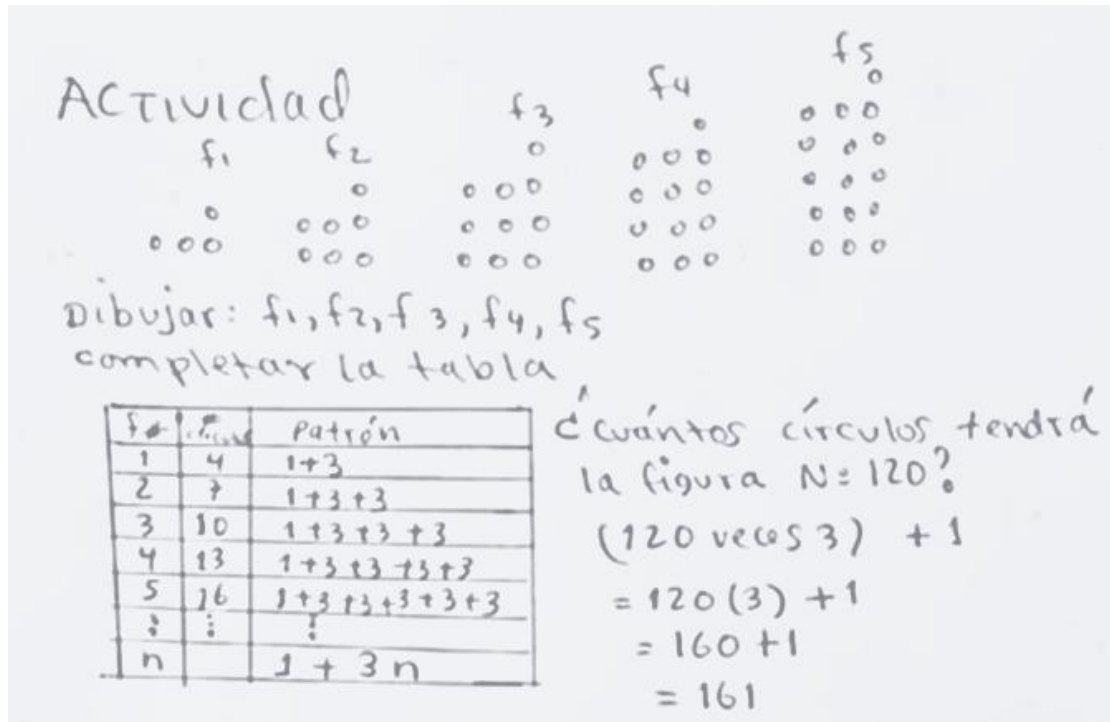 ACTIVIdad
f1 f2 f3 f4 f5
Dibujar: f1, f2, f3, f4, f5
completar la tabla
f# Patrón
1 4 1+3
2 7 1+3+3
3 10 1+3+3+3
4 13 1+3+3+3+3
5 16 1+3+3+3+3+3
⋮ ⋮ ⋮
n 1 + 3n
¿cuántos círculos tendrá
la figura N=120?
(120 veces 3) + 1
= 120(3) + 1
= 160 + 1
= 161